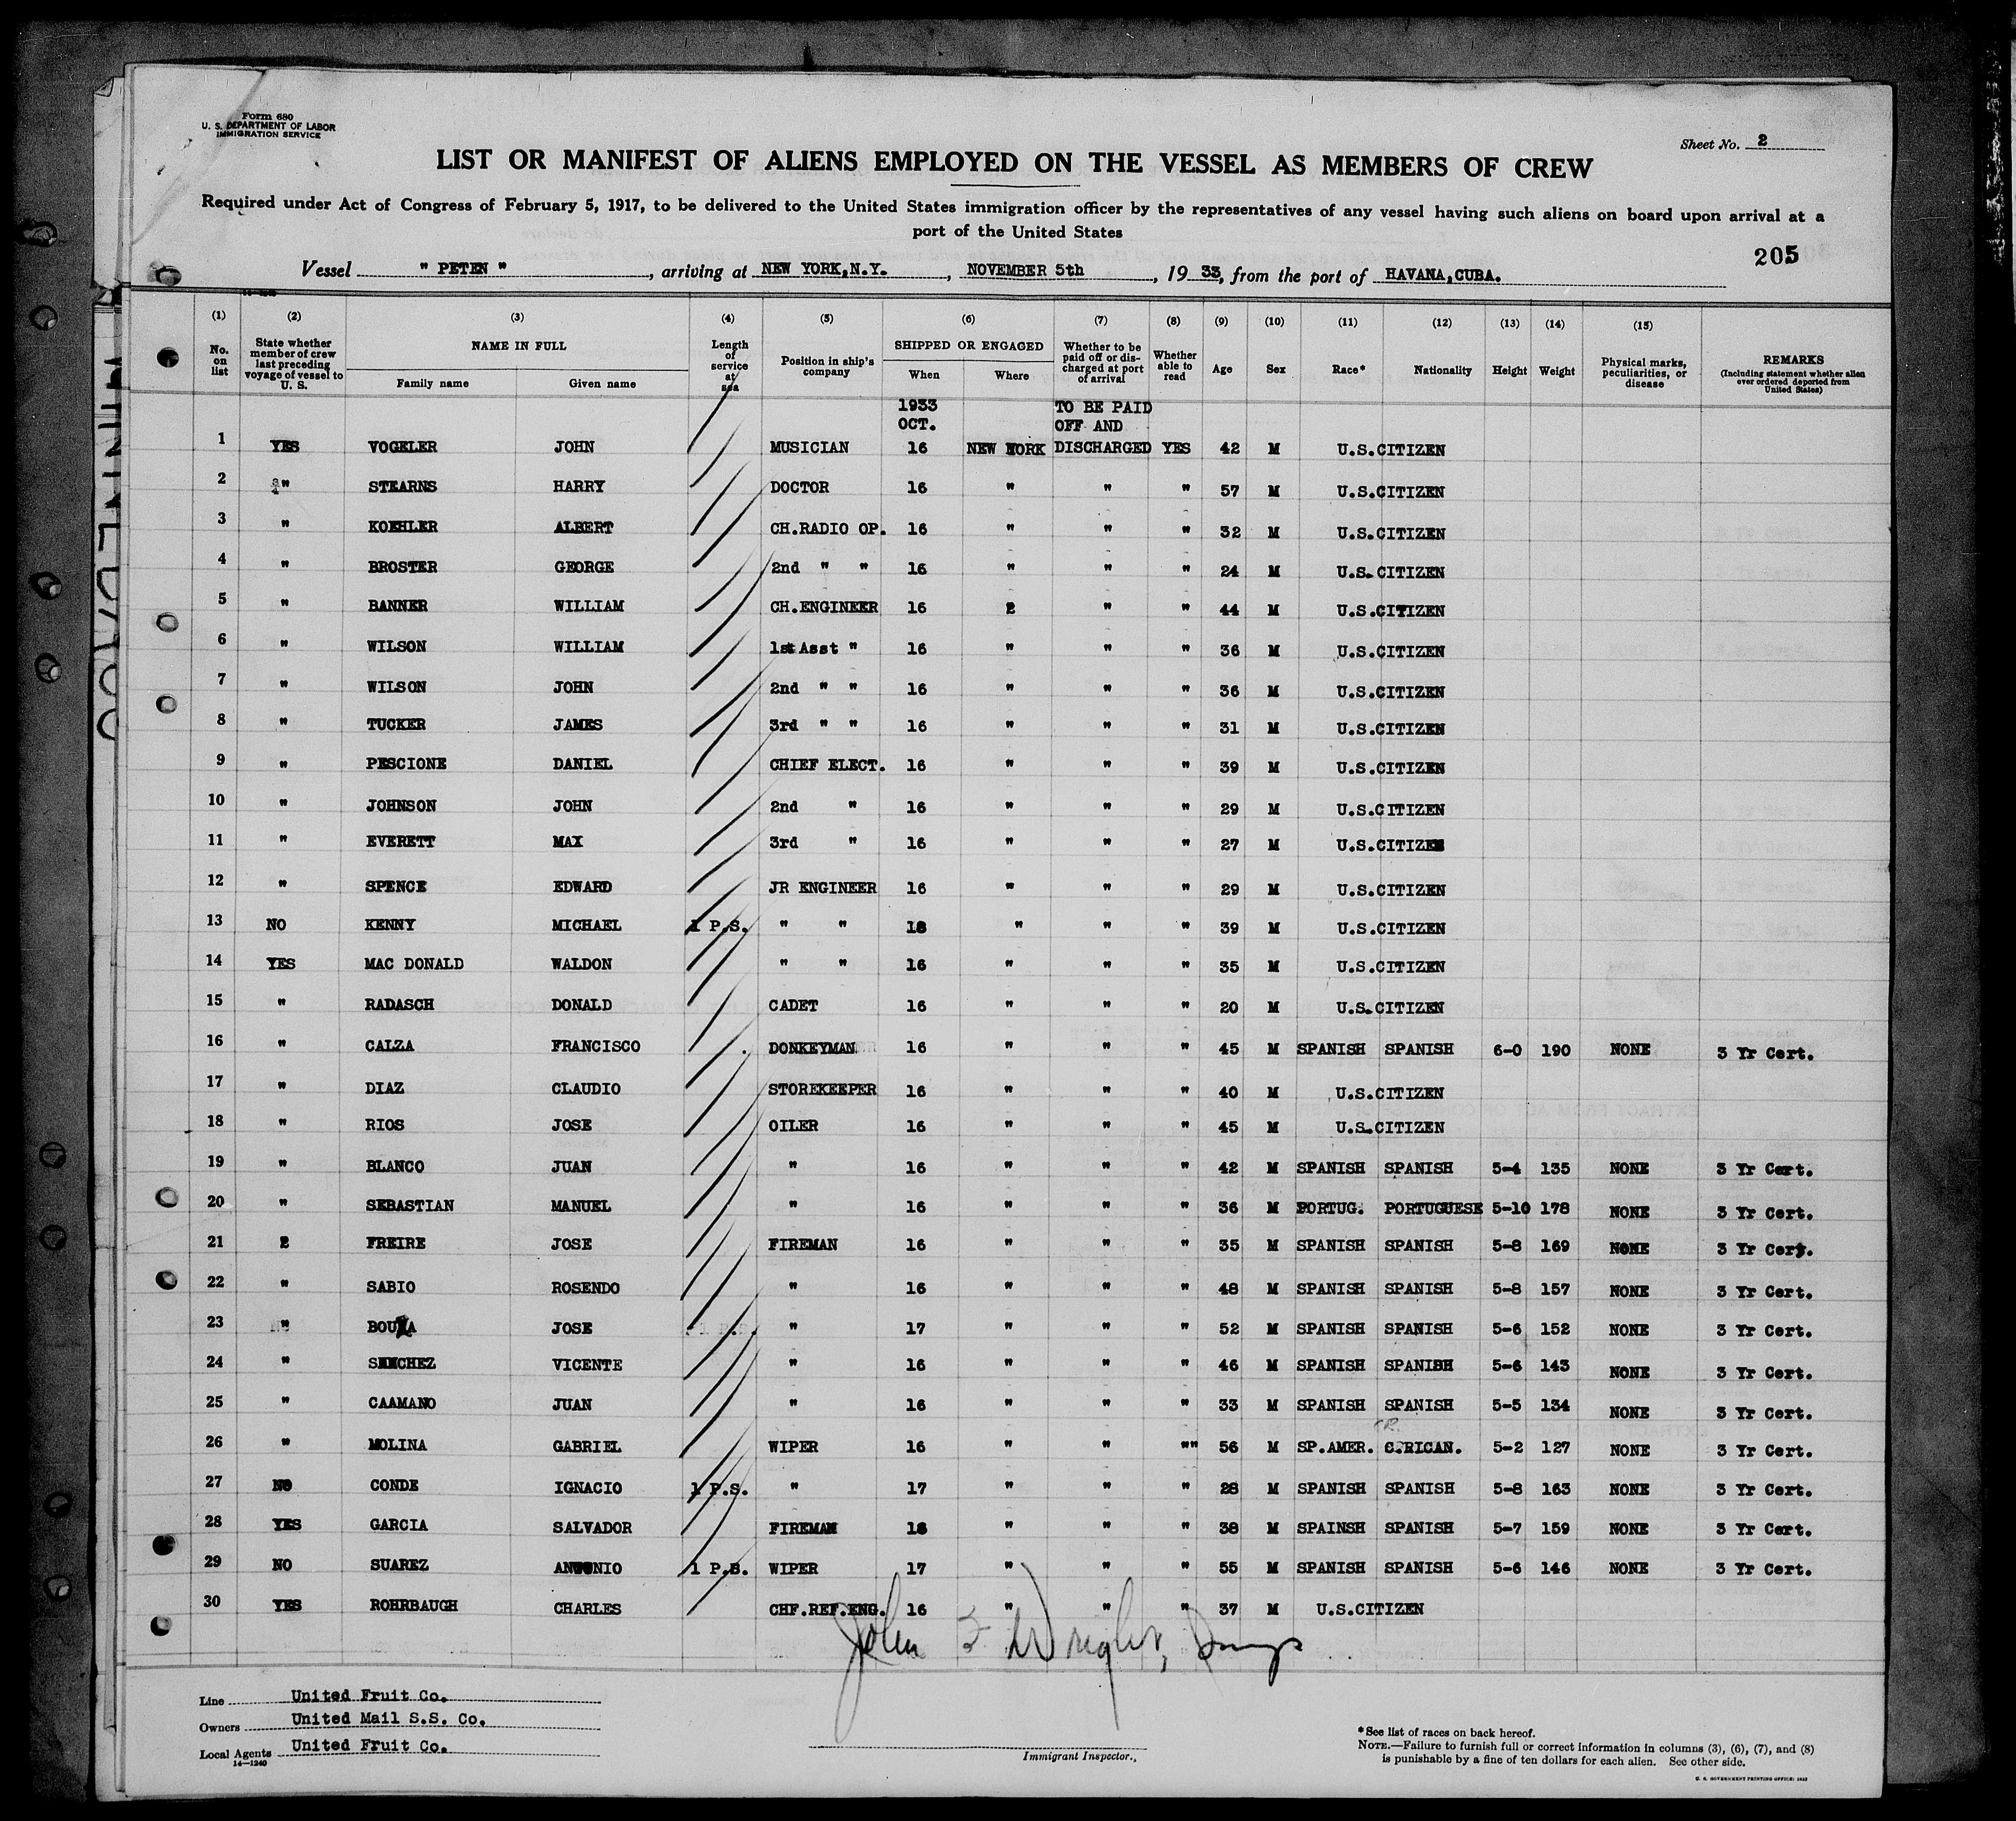 Form 680
U. S. DEPARTMENT OF LABOR
IMMIGRATION SERVICE
Sheet No. 2
LIST OR MANIFEST OF ALIENS EMPLOYED ON THE VESSEL AS MEMBERS OF CREW
Required under Act of Congress of February 5, 1917, to be delivered to the United States immigration officer by the representatives of any vessel having such aliens on board upon arrival at a
port of the United States
205
Vessel " PETEN ", arriving at NEW YORK,N.Y., NOVEMBER 5th, 1933, from the port of HAVANA,CUBA.
(1) (2) (3) (4) (5) (6) (7) (8) (9) (10) (11) (12) (13) (14) (15)
No. on list State whether member of crew last preceding voyage of vessel to U. S. NAME IN FULL Family name Given name Length of service at sea Position in ship's company SHIPPED OR ENGAGED When Where Whether to be paid off or discharged at port of arrival Whether able to read Age Sex Race* Nationality Height Weight Physical marks, peculiarities, or disease REMARKS (Including statement whether alien ever ordered deported from United States)
1933 TO BE PAID
OCT. OFF AND
1 YES VOGELER JOHN MUSICIAN 16 NEW YORK DISCHARGED YES 42 M U.S.CITIZEN
2 " STEARNS HARRY DOCTOR 16 " " " 57 M U.S.CITIZEN
3 " KOEHLER ALBERT CH.RADIO OP. 16 " " " 32 M U.S.CITIZEN
4 " BROSTER GEORGE 2nd " " 16 " " " 24 M U.S.CITIZEN
5 " BANNER WILLIAM CH.ENGINEER 16 2 " " 44 M U.S.CITIZEN
6 " WILSON WILLIAM 1st Asst " 16 " " " 36 M U.S.CITIZEN
7 " WILSON JOHN 2nd " " 16 " " " 36 M U.S.CITIZEN
8 " TUCKER JAMES 3rd " " 16 " " " 31 M U.S.CITIZEN
9 " PESCIONE DANIEL CHIEF ELECT. 16 " " " 39 M U.S.CITIZEN
10 " JOHNSON JOHN 2nd " 16 " " " 29 M U.S.CITIZEN
11 " EVERETT MAX 3rd " 16 " " " 27 M U.S.CITIZEN
12 " SPENCE EDWARD JR ENGINEER 16 " " " 29 M U.S.CITIZEN
13 NO KENNY MICHAEL 1 P.S. " " 18 " " " 39 M U.S.CITIZEN
14 YES MAC DONALD WALDON " " 16 " " " 35 M U.S.CITIZEN
15 " RADASCH DONALD CADET 16 " " " 20 M U.S.CITIZEN
16 " CALZA FRANCISCO DONKEYMAN 16 " " " 45 M SPANISH SPANISH 6-0 190 NONE 3 Yr Cert.
17 " DIAZ CLAUDIO STOREKEEPER 16 " " " 40 M U.S.CITIZEN
18 " RIOS JOSE OILER 16 " " " 45 M U.S.CITIZEN
19 " BLANCO JUAN " 16 " " " 42 M SPANISH SPANISH 5-4 135 NONE 3 Yr Cert.
20 " SEBASTIAN MANUEL " 16 " " " 36 M PORTUG. PORTUGUESE 5-10 178 NONE 3 Yr Cert.
21 2 FREIRE JOSE FIREMAN 16 " " " 35 M SPANISH SPANISH 5-8 169 NONE 3 Yr Cert.
22 " SABIO ROSENDO " 16 " " " 48 M SPANISH SPANISH 5-8 157 NONE 3 Yr Cert.
23 " BOUZA JOSE " 17 " " " 52 M SPANISH SPANISH 5-6 152 NONE 3 Yr Cert.
24 " SANCHEZ VICENTE " 16 " " " 46 M SPANISH SPANISH 5-6 143 NONE 3 Yr Cert.
25 " CAAMANO JUAN " 16 " " " 33 M SPANISH SPANISH 5-5 134 NONE 3 Yr Cert.
26 " MOLINA GABRIEL WIPER 16 " " "" 56 M SP.AMER. C.RICAN. 5-2 127 NONE 3 Yr Cert.
27 NO CONDE IGNACIO 1 P.S. " 17 " " " 28 M SPANISH SPANISH 5-8 163 NONE 3 Yr Cert.
28 YES GARCIA SALVADOR FIREMAN 18 " " " 38 M SPAINSH SPANISH 5-7 159 NONE 3 Yr Cert.
29 NO SUAREZ ANTONIO 1 P.S. WIPER 17 " " " 55 M SPANISH SPANISH 5-6 146 NONE 3 Yr Cert.
30 YES ROHRBAUGH CHARLES CHF.REF.ENG. 16 " " " 37 M U.S.CITIZEN
John Wright,
Line United Fruit Co.
Owners United Mail S.S. Co.
Local Agents United Fruit Co.
14—1240
Immigrant Inspector.
*See list of races on back hereof.
NOTE.—Failure to furnish full or correct information in columns (3), (6), (7), and (8)
is punishable by a fine of ten dollars for each alien. See other side.
U. S. GOVERNMENT PRINTING OFFICE: 1932